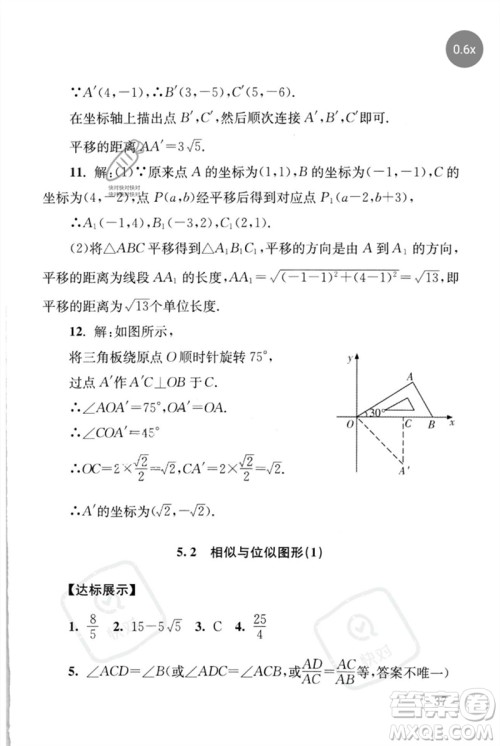 0.6x
∵A′(4,-1),∴B′(5,-5),C′(5,-6).
在坐标轴上描出点 B′,C′,然后顺次连接 A′,B′,C′即可.
平移的距离 AA′=3√5.
11. 解:(1)∵原来点 A 的坐标为(1,1),B 的坐标
为(4,-2),点 P(a,b)经平移后得到对应点 P₁(a-2,b+3),
∴A₁(-1,4),B₁(2,1).
(2)将△ABC 平移得到△A₁B₁C₁,平移的方向是由
平移的距离为线段 AA₁ 的长度,AA₁=√((-1-1)²+(4-1)²)=√13,即
平移的距离为 √13个单位长度.
12. 解:如图所示,
将三角板绕原点 O 顺时针旋转 75°,
过点 A′作 A′C⊥OB 于 C.
∴∠AOA′=75°,OA′=OA.
∴∠COA′=45°.
∴OC=2×√2/2=√2,CA′=2×√2/2=√2.
∴A′的坐标为(√2,-√2).
y
A
30°
O
C
B
x
A′
5.2 相似与位似图形(1)
【达标展示】
1. 8/5 2. 15-5√5 3. C 4. 25/4
5. ∠ACD=∠B(或∠ADC=∠ACB,或AD/AC=AC/AB等,答案不唯一)
37
快对
快对
答案圈
MXQE.COM